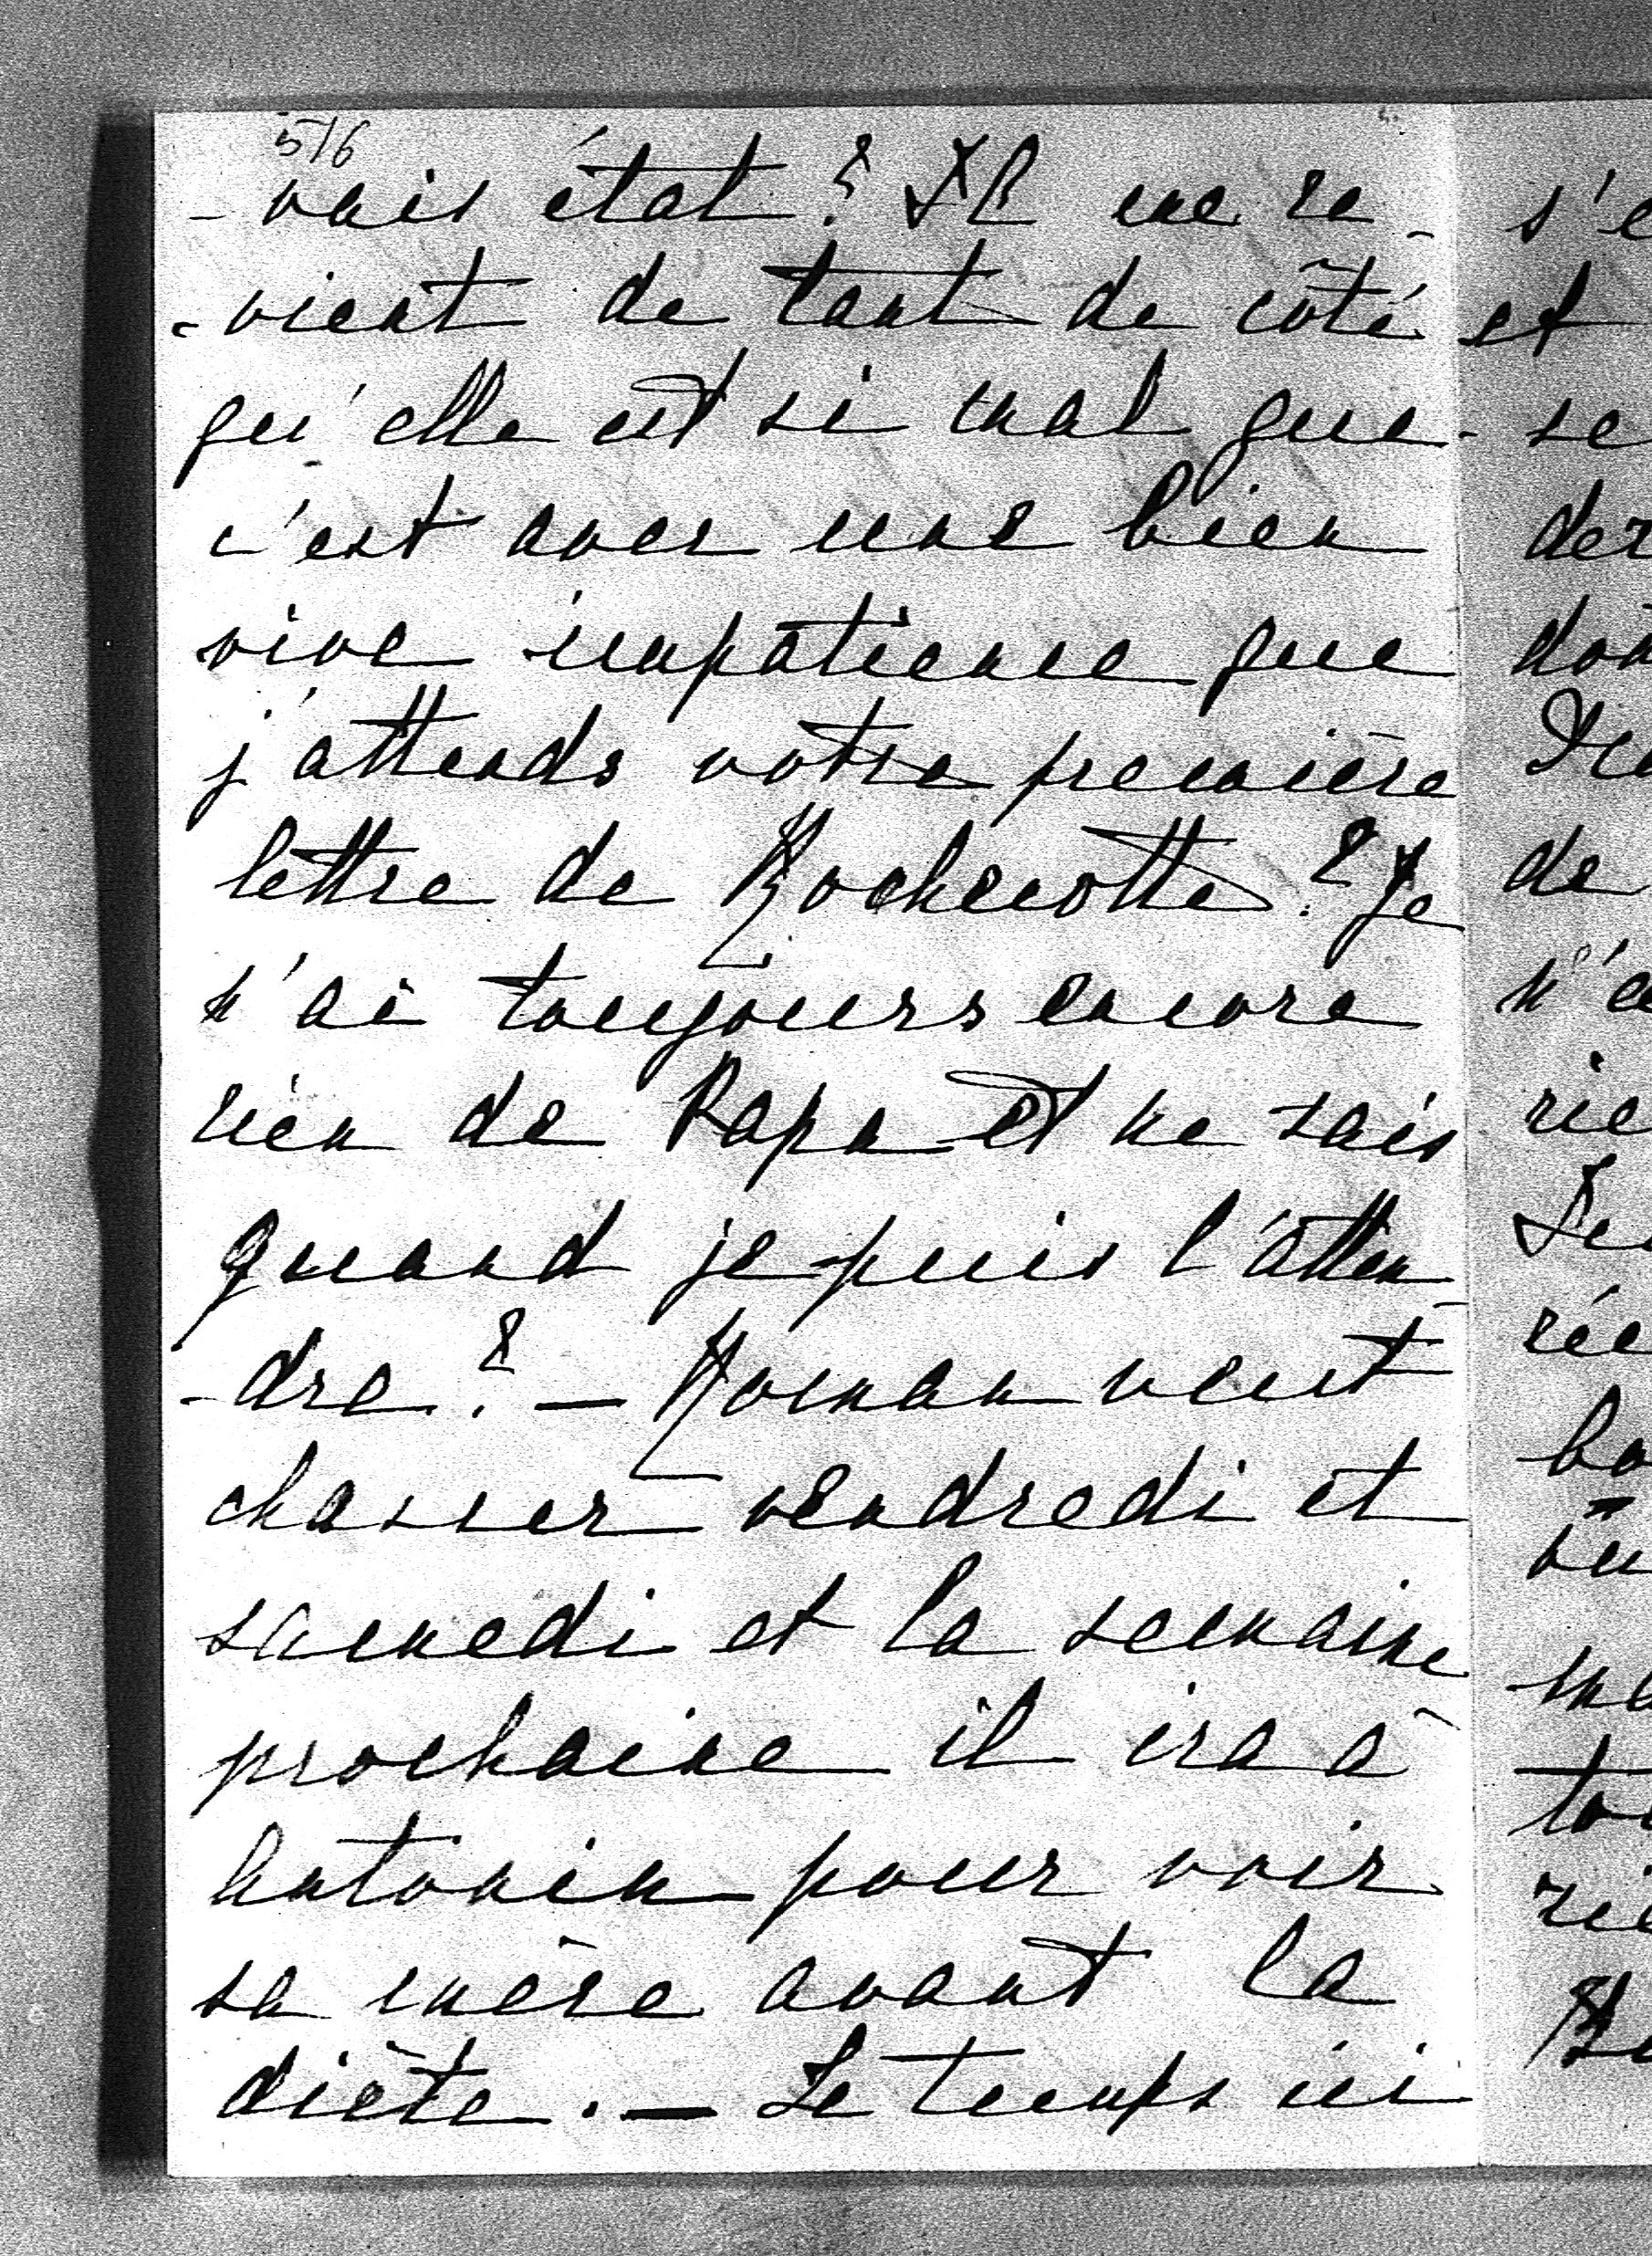 516
-vais état? Il me re-
-vient de tant de côté
qu'elle est si mal que
c'est avec une bien
vive impatience que
j'attends votre première
lettre de Rochecotte? Je
n'ai toujours encore
rien de Papa et ne sais
quand je puis l'atten-
-dre? — Roman veut
chasser vendredi et
samedi et la semaine
prochaine il ira à
Antonin pour voir
sa mère avant la
diète. — Le temps ici
s'e
et
se
der
don
de
n'e
rie
rée
bo
to